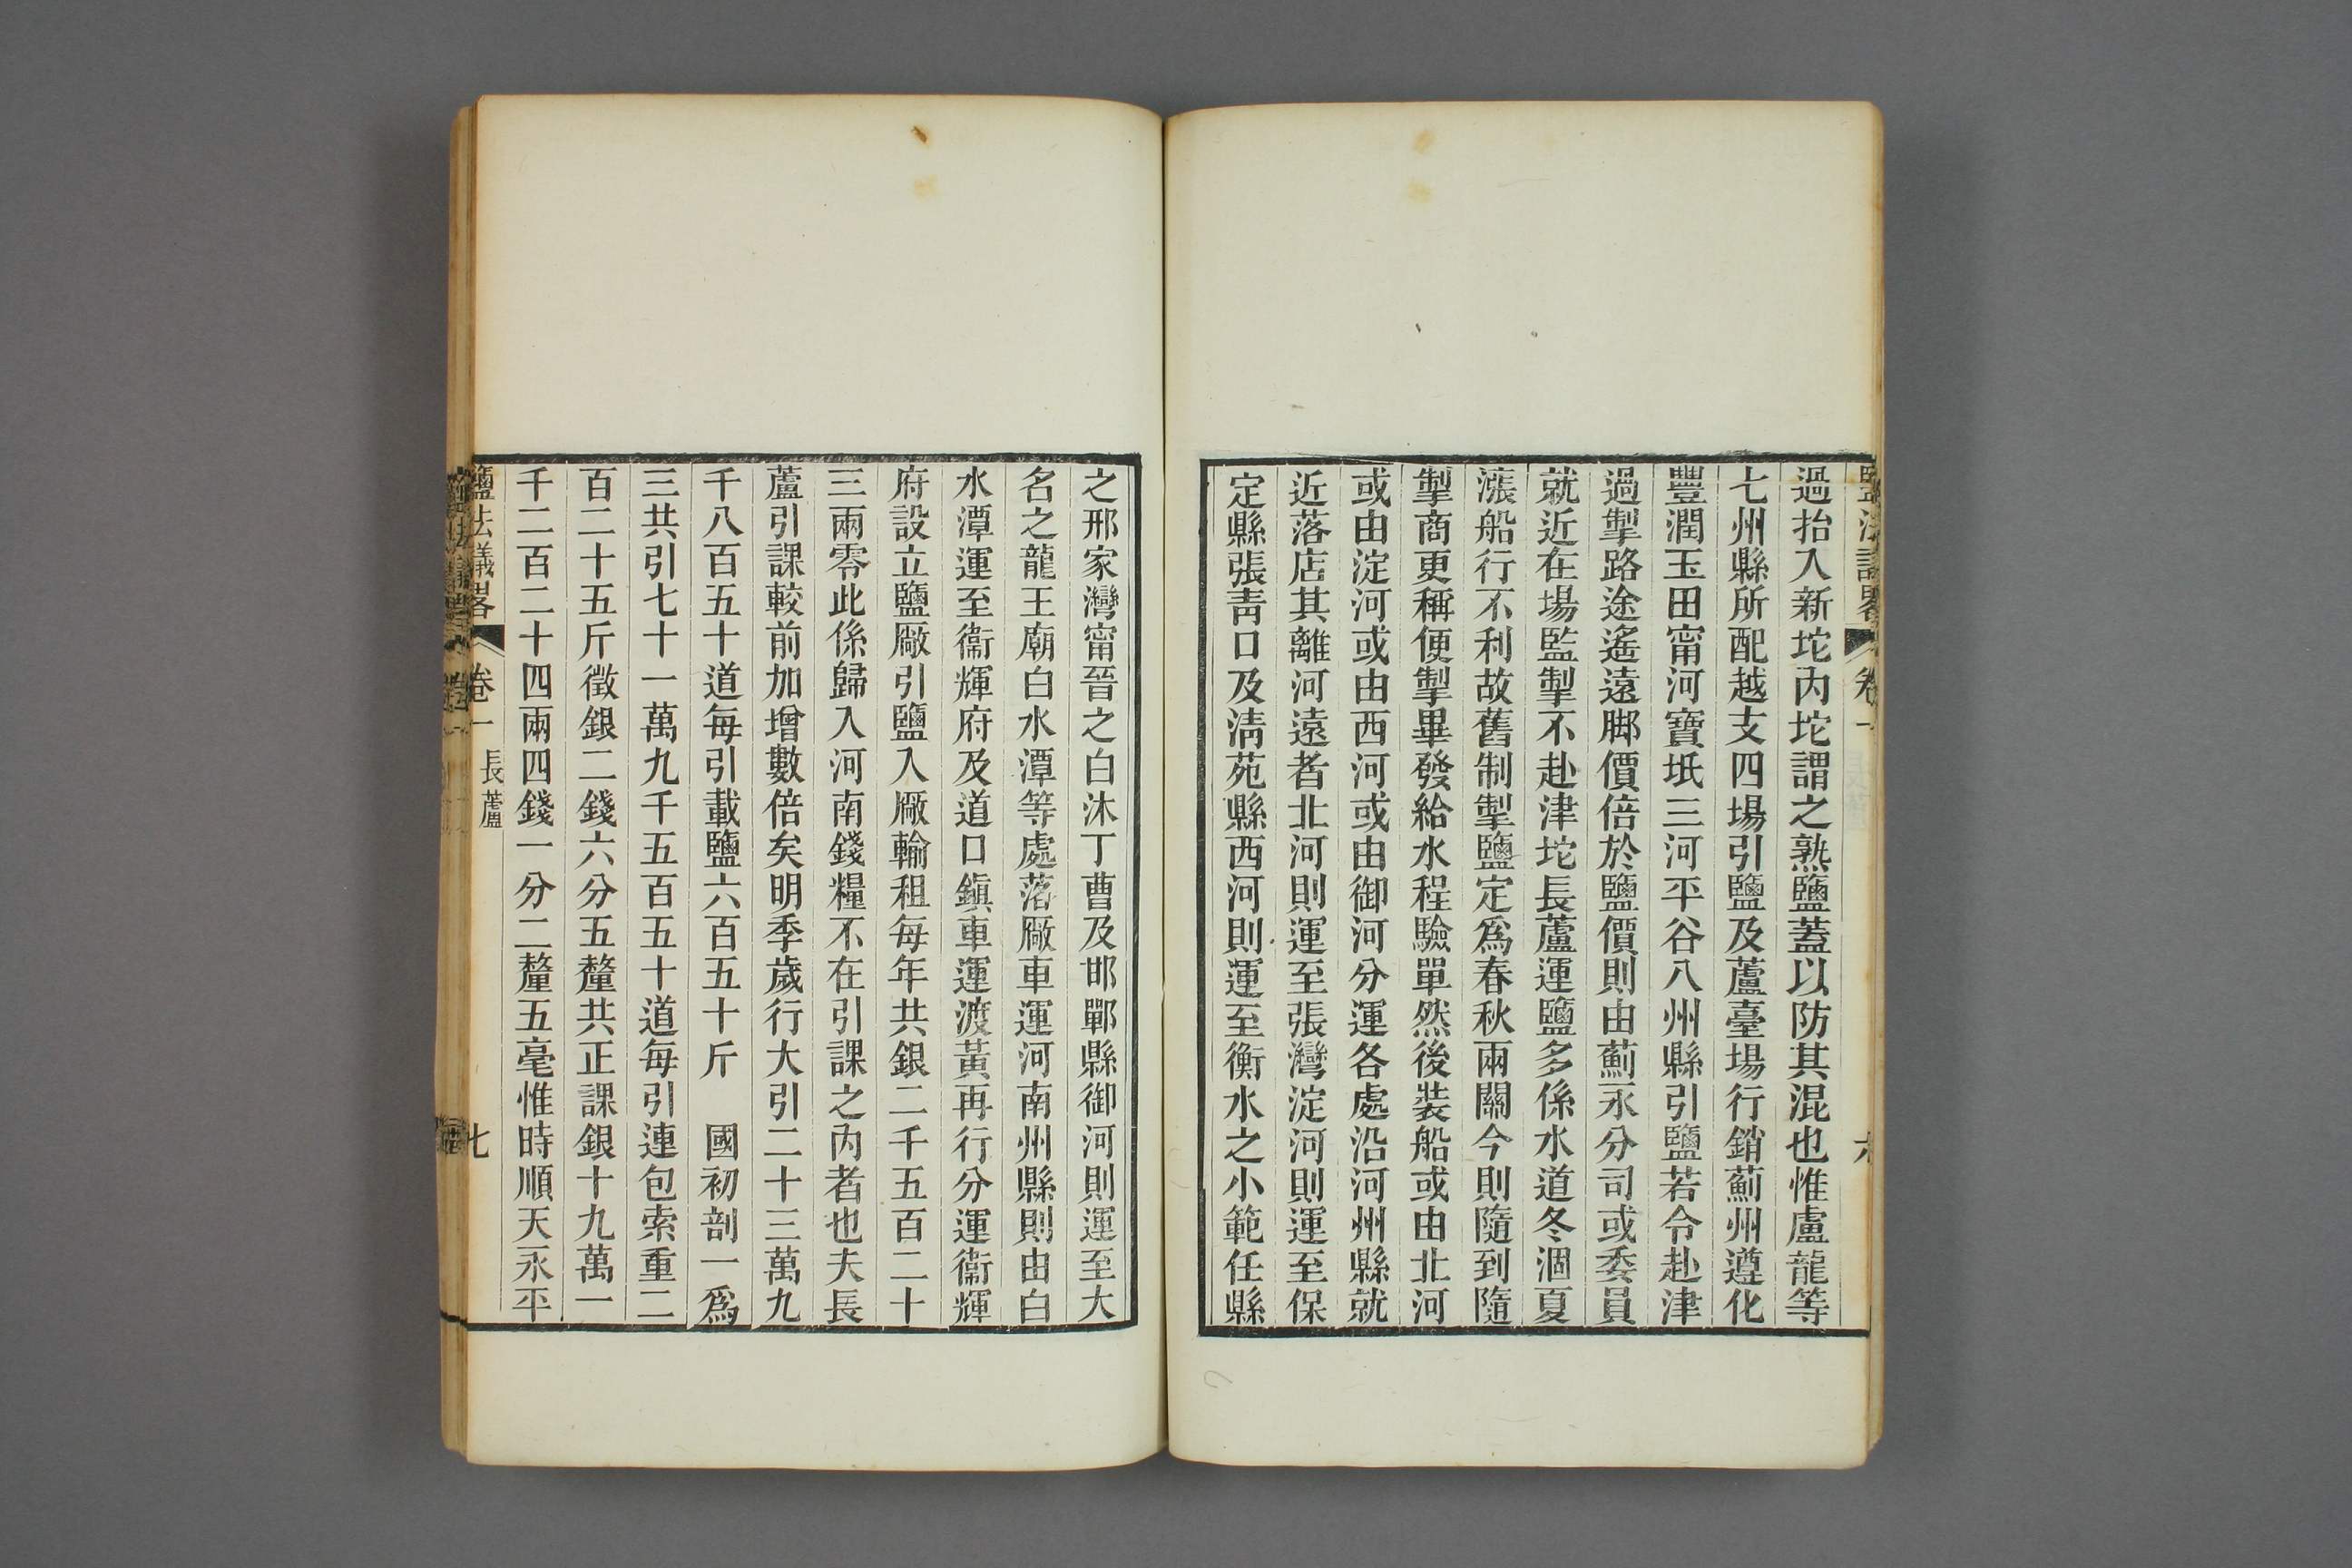 過抬入新坨內坨謂之熟鹽蓋以防其混也惟盧龍等
七州縣所配越支四場引鹽及蘆臺場行銷薊州遵化
豐潤玉田甯河寶坻三河平谷八州縣引鹽若令赴津
過掣路途遙遠脚價倍於鹽價則由薊永分司或委員
就近在場監掣不赴津坨長蘆運鹽多係水道冬涸夏
漲船行不利故舊制掣鹽定爲春秋兩關今則隨到隨
掣商更稱便掣畢發給水程驗單然後裝船或由北河
或由淀河或由西河或由御河分運各處沿河州縣就
近落店其離河遠者北河則運至張灣淀河則運至保
定縣張青口及淸苑縣西河則運至衡水之小範任縣
之邢家灣甯晉之白沐丁曹及邯鄲縣御河則運至大
名之龍王廟白水潭等處落厰車運河南州縣則由白
水潭運至衞輝府及道口鎭車運渡黃再行分運衞輝
府設立鹽厰引鹽入厰輸租每年共銀二千五百二十
三兩零此係歸入河南錢糧不在引課之內者也夫長
蘆引課較前加增數倍矣明季歲行大引二十三萬九
千八百五十道每引載鹽六百五十斤　國初剖一爲
三共引七十一萬九千五百五十道每引連包索重二
百二十五斤徵銀二錢六分五釐共正課銀十九萬一
千二百二十四兩四錢一分二釐五毫惟時順天永平
鹽法議畧　卷一　長蘆　七